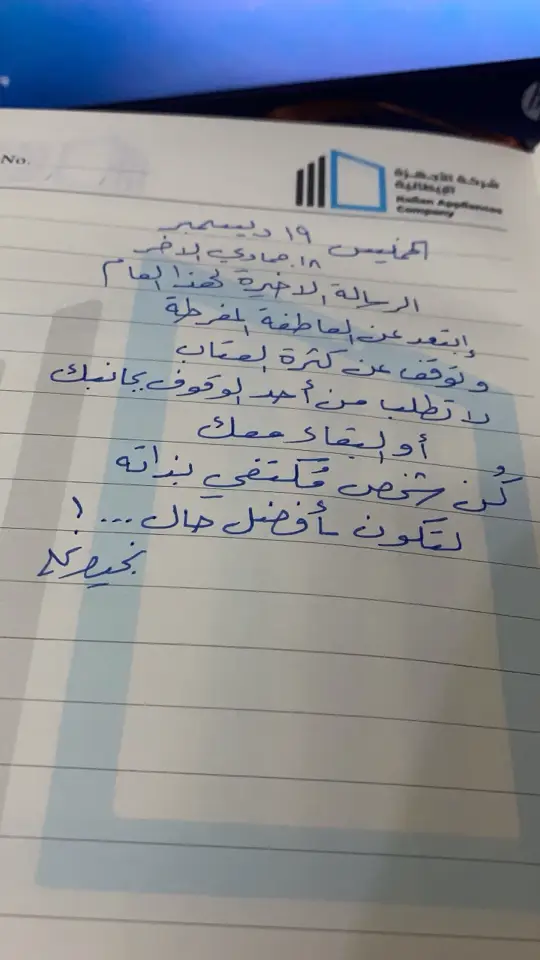 No.
شركة الأجهزة
الإيطالية
Italian Appliances
Company
الخميس ١٩ ديسمبر
١٨. جمادي الاخر
الرسالة الاخيرة لهذا العام
إبتعد عن العاطفة المفرطة
وتوقف عن كثرة العتاب
لا تطلب من أحد الوقوف بجانبك
أو البقاء معك
كُن شخص مُكتفي بذاته
لتكون بأفضل حال ... !